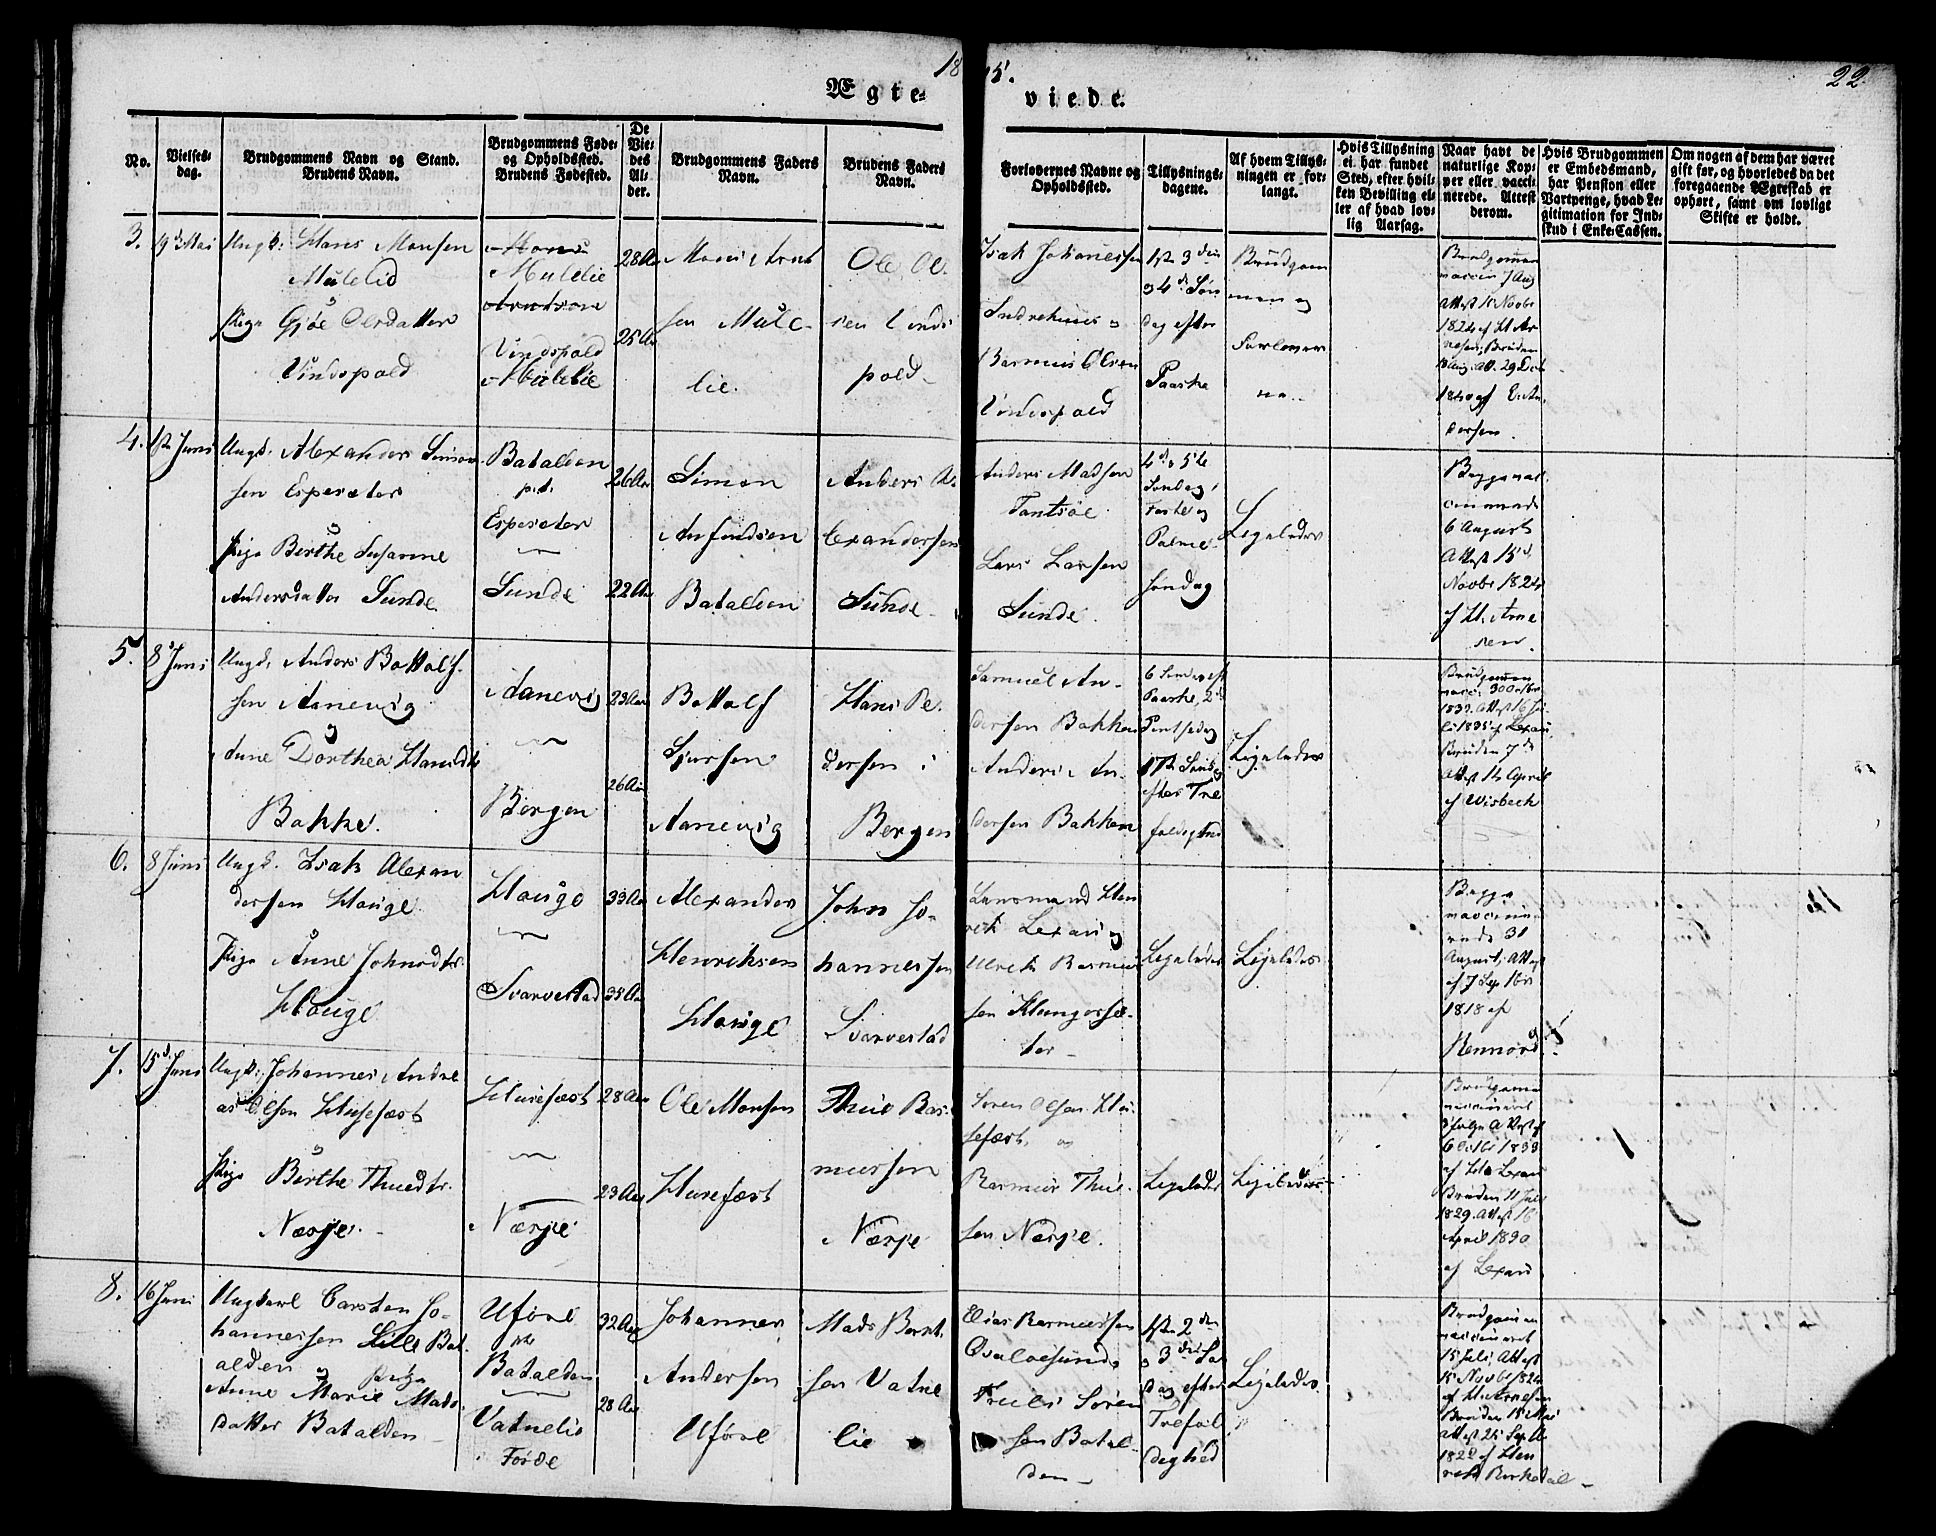 18
5.
22.
Ægte-
viede.
No.
Vielses-
dag.
Brudgommens Navn og Stand.
Brudens Navn.
Brudgommens Føde-
og Opholdssted.
Brudens Fødested.
De
Vie-
des
Al-
der.
Brudgommens Faders
Navn.
Brudens Faders
Navn.
Forlovernes Navne og
Opholdssted.
Tillysnings-
dagene.
Af hvem Tillys-
ningen er for-
langt.
Hvis Tillysning
ei har fundet
Sted, efter hvil-
ken Bevilling el-
ler af hvad lov-
lig Aarsag.
Naar havt de
naturlige Kop-
per eller vacci-
nerede. Attest
derom.
Hvis Brudgommen
er Embedsmand,
har Pension eller
Vartpenge, hvad Le-
gitimation for Ind-
skud i Enke-Cassen.
Om nogen af dem har været
gift før, og hvorledes da det
foregaaende Ægteskab er
ophørt, samt om lovligt
Skifte er holdt.
3.
19 Mai
Ungk. Hans Monsen
Mulelid
Pige Gjøe Olsdatter
Vindspold
Mulelie
Vindspold
Mulelie
28 Aar
25 Aar
Mons
sen Mule-
lie.
Ole Ol-
sen Vinds
pold
Isak Johanessen
Indrehuus og
Rasmus Olsen
Vindspold
3die
og 4de Søn
dag efter
Paaske
Brudgom
men og
Forlover
ne
Brudgommen
vaccin 7 Aug
Attest 15 Novbr
1824 af H. Ar
nesen; Bruden
Att. 29 Octb
af E. An
dersen.
4.
1ste Juni
Ungk. Alexander Simon
sen Espesæter
og
Pige Berthe Susanne
Andersdatter Sunde
Batalden
p.t.
Espesæter
Sunde
26 Aar
22 Aar
Simon
Anfindsen
Batalden
Anders Al
lexandersen
Sunde
Anders Madsen
Tantsøe
Lars Larsen
Sunde.
4de 5te
Søndag i
Faste og
Palme-
søndag
Ligeledes
Begge vac
cinerede
6 August
Attest 15de
Novbr 1824
af H. Arne
sen.
5.
8 Juni
Ungk. Anders Bottolf-
sen Aanevig
og
Anne Dorthea Hansdtr
Bakke.
Aanevig
Bergen
23 Aar
26 Aar
Bottolf
Sjursen
Aanevig
Hans Pe-
dersen i
Bergen
Samuel An-
dersen Bakken
Anders An-
dersen Bakken
6 Søndag eft
Paaske, 2den
Pintsedag
1ste Sönd
efter Tre
foldighed
Ligeledes
Brudgommen
vacc. 30 Octbr
Bruden 7de
Attest 14 April
af Wisbech
6.
8 Juni
Ungk. Isak Alexan
dersen Houge
og
Pige Anne Johnsdtr.
Houge
Houge
Svarvestad
33 Aar
35 Aar
Alexander
Henriksen
Houge
John Jo-
hannessen
Svarvestad
Lensmand Hen
rik Lexau og
Ulrik Rasmus
sen Klungerse-
ter
Ligeledes
Ligeledes
Begge
vaccine
rede 31
August; Attest
af 7 September
1818 af
Rennord
7.
15 Juni
Ungk. Johannes Andre
as Olsen Husefæst
og
Pige Berthe Thuedtr.
Næsje.
Husefæst
Næsje
28 Aar
23 Aar
Ole Monsen
Husefæst
Thue Ras-
mussen
Næsje
Søren Olsen Hu-
sefæst, og
Rasmus Thue-
sen Næsje.
Ligeledes
Ligeledes
Brudgommen
vaccineret
Attest af
6 Octbr 1833
af Lexau
Bruden 11 Juli
1829. Attest 16
April 1830
af Lexau
8.
16 Juni
Ungkarl Carsten Jo-
hannessen Lille Bat
alden og Pige
Anne Marie Mads
datter Batalden
Uføre
Batalden
Vatnelie
Førde
32 Aar
28 Aar
Johannes
Andersen
Uføre
Mads Bernt-
sen Vatne
lie
Elias Rasmussen
Qvalvesund og
Truls Søren
sen Batal-
den
1ste 2den
og 3die Søn
dag efter
Trefol
dighed
Ligeledes
Brudgommen
vaccineret
15 Juli; Attest
15 Novbr 1824
af H. Arnesen
Bruden 15 Mai
Attest 25 Sept
af Hen
rik Birketal